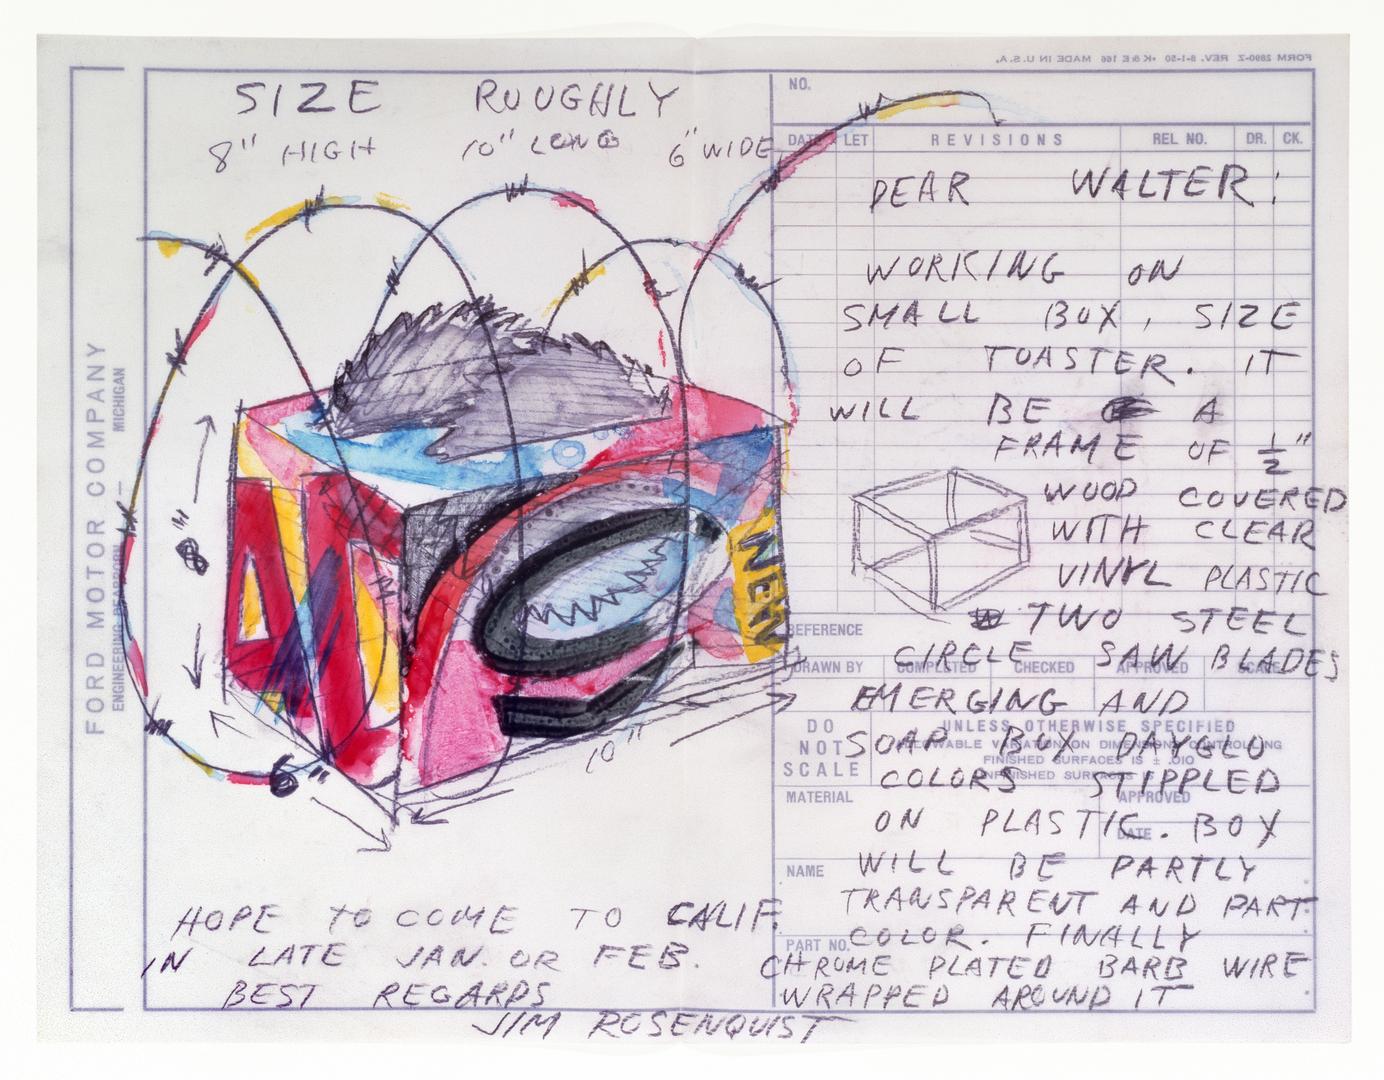 FORM 2890-Z REV. 8-1-50 •K&E 166 MADE IN U.S.A.
FORD MOTOR COMPANY
ENGINEERING DEARBORN — MICHIGAN
SIZE ROUGHLY
8" HIGH 10" LONG 6" WIDE
8"
6"
10"
NEW
NO.
DATE LET REVISIONS REL NO. DR. CK.
DEAR WALTER:
WORKING ON
SMALL BOX, SIZE
OF TOASTER. IT
WILL BE A
FRAME OF 1/2"
WOOD COVERED
WITH CLEAR
VINYL PLASTIC
TWO STEEL
REFERENCE
CIRCLE SAW BLADES
DRAWN BY COMPLETED CHECKED APPROVED SCALE
EMERGING AND
DO NOT SCALE
UNLESS OTHERWISE SPECIFIED
ALLOWABLE VARIATION ON DIMENSIONS CONTROLLING
FINISHED SURFACES IS ± .010
UNFINISHED SURFACES IS
SOAP BOX DAYGLO
COLORS STIPPLED
MATERIAL
APPROVED
DATE
ON PLASTIC. BOX
NAME
WILL BE PARTLY
TRANSPARENT AND PART
PART NO.
COLOR. FINALLY
CHROME PLATED BARB WIRE
WRAPPED AROUND IT
HOPE TO COME TO CALIF.
IN LATE JAN. OR FEB.
BEST REGARDS
JIM ROSENQUIST